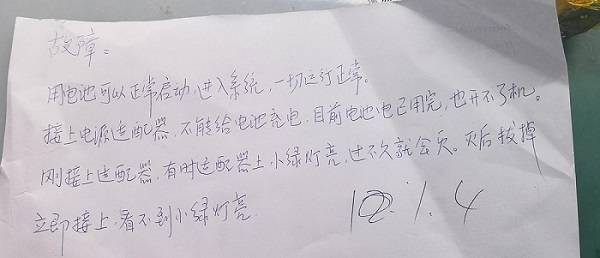 故障：
用电池可以正常启动，进入系统，一切运行正常。
接上电源适配器，不能给电池充电，目前电池电已用完，也开不了机。
刚接上适配器，有时适配器上小绿灯亮，过不久就会灭。灭后拔掉
立即接上，看不到小绿灯亮.